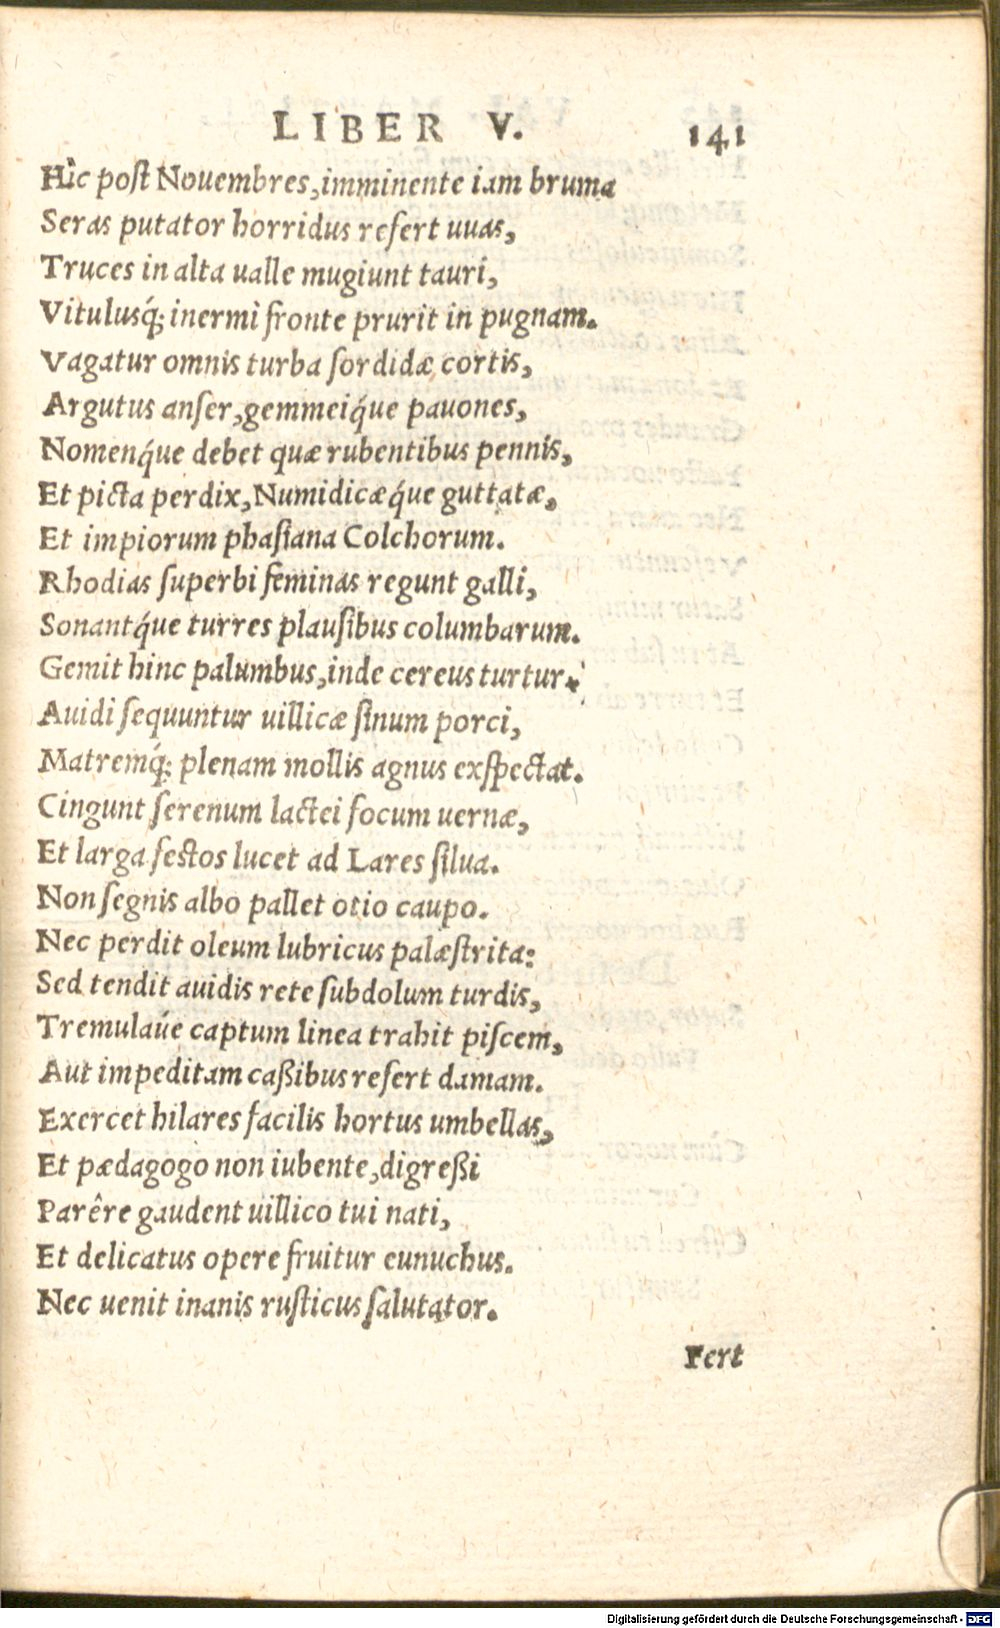 LIBER V. 141
Hìc post Nouembres, imminente iam bruma
Seras putator horridus refert uuas,
Truces in alta ualle mugiunt tauri,
Vitulusq́; inermi fronte prurit in pugnam.
Vagatur omnis turba sordidæ cortis,
Argutus anser, gemmeiq́ue pauones,
Nomenq́ue debet quæ rubentibus pennis,
Et picta perdix, Numidicæq́ue guttatæ,
Et impiorum phasiana Colchorum.
Rhodias superbi feminas regunt galli,
Sonantq́ue turres plausibus columbarum.
Gemit hinc palumbus, inde cereus turtur.
Auidi sequuntur uillicæ sinum porci,
Matremq́; plenam mollis agnus exspectat.
Cingunt serenum lactei focum uernæ,
Et larga festos lucet ad Lares silua.
Non segnis albo pallet otio caupo.
Nec perdit oleum lubricus palæstrita:
Sed tendit auidis rete subdolum turdis,
Tremulaúe captum linea trahit piscem,
Aut impeditam caßibus refert damam.
Exercet hilares facilis hortus umbellas,
Et pædagogo non iubente, digreßi
Parêre gaudent uillico tui nati,
Et delicatus opere fruitur eunuchus.
Nec uenit inanis rusticus salutator.
Fert
Digitalisierung gefördert durch die Deutsche Forschungsgemeinschaft - DFG